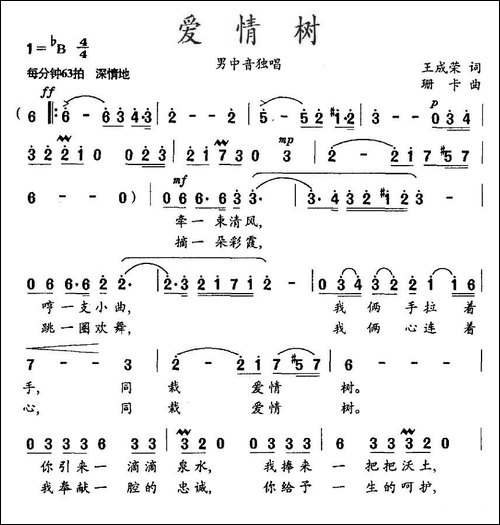 爱情树
1=♭B 4/4
男中音独唱
每分钟63拍 深情地
王成荣 词
珊卡 曲
ff
(6 ‖: 6 - 6 3 4·3 | 2 - - 2 | 5 - 5 2 #1·2 | 3 - - 0 3 4 |
p
3 2 2 1 0 0 2 3 | 2 1 7 3 0 3 | 2 - 2 1 7 #5 7 |
mp
6 - - 0) | 0 6 6·6 3 3· | 3·4 3 2 #1 2 3 - |
mf
牵一束清风,
摘一朵彩霞,
0 6 6·6 2 2· | 2·3 2 1 7 1 2 - | 0 3 4 3 2 2 1 1 6 |
哼一支小曲, 我俩手拉着
跳一圈欢舞, 我俩心连着
7 - - 3 | 2 - 2 1 7 #5 7 | 6 - - - |
手, 同栽爱情树。
心, 同栽爱情树。
0 3 3 3 6 3 3 | 3 2 0 | 0 6 6 6 3 3 3 2 0 |
你引来一滴滴泉水, 我捧来一把把沃土,
我奉献一腔的忠诚, 你给予一生的呵护,